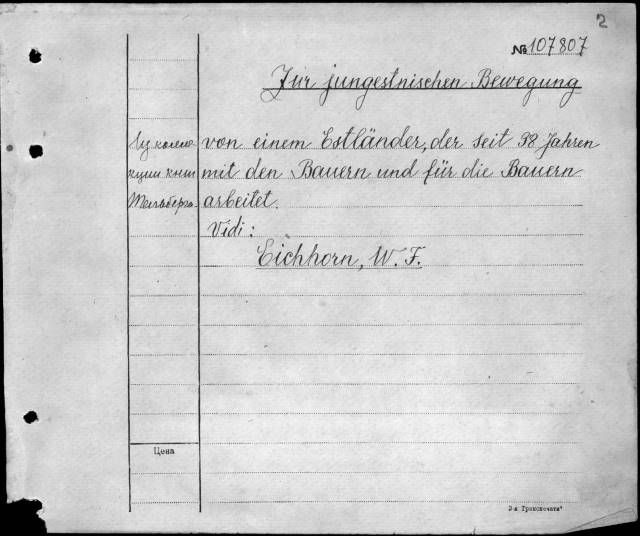 2
№ 107807
Zur jungestnischen Bewegung
Из коллек
ции книг
Тальберга.
von einem Estländer, der seit 38 Jahren
mit den Bauern und für die Bauern
arbeitet.
Vidi:
Eichhorn, W. F.
Цена